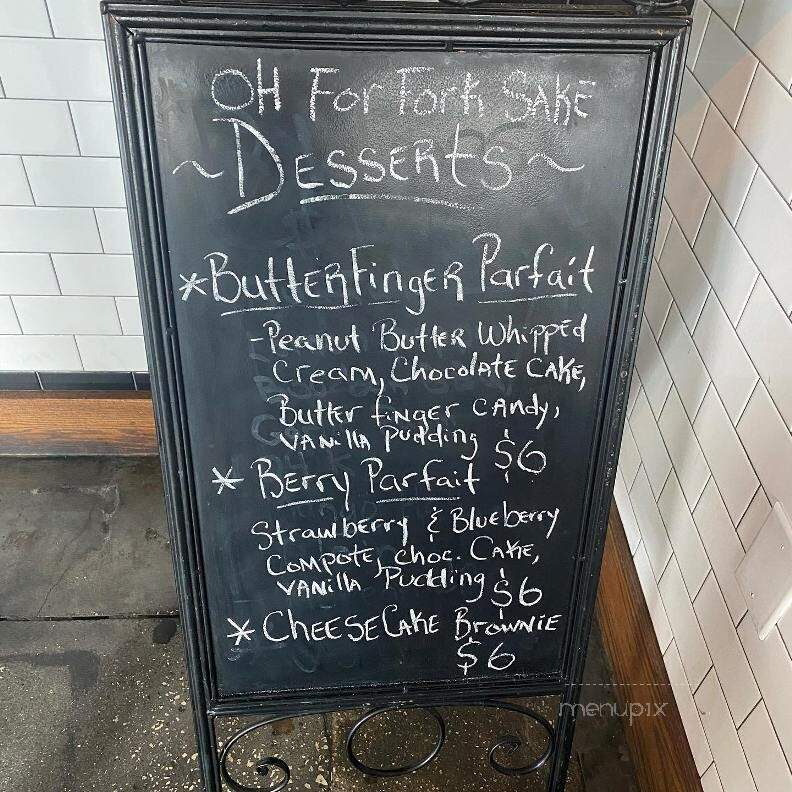 OH For Fork SAKE
~DESSERtS~
*ButterFinger Parfait
-Peanut Butter Whipped
Cream, Chocolate CAKE,
Butter finger cAndy,
VANillA pudding $6
* Berry Parfait
Strawberry & Blueberry
Compote, choc. CAKE,
VANillA Pudding $6
* CHEESECAKE BrownIE
$6
menupix